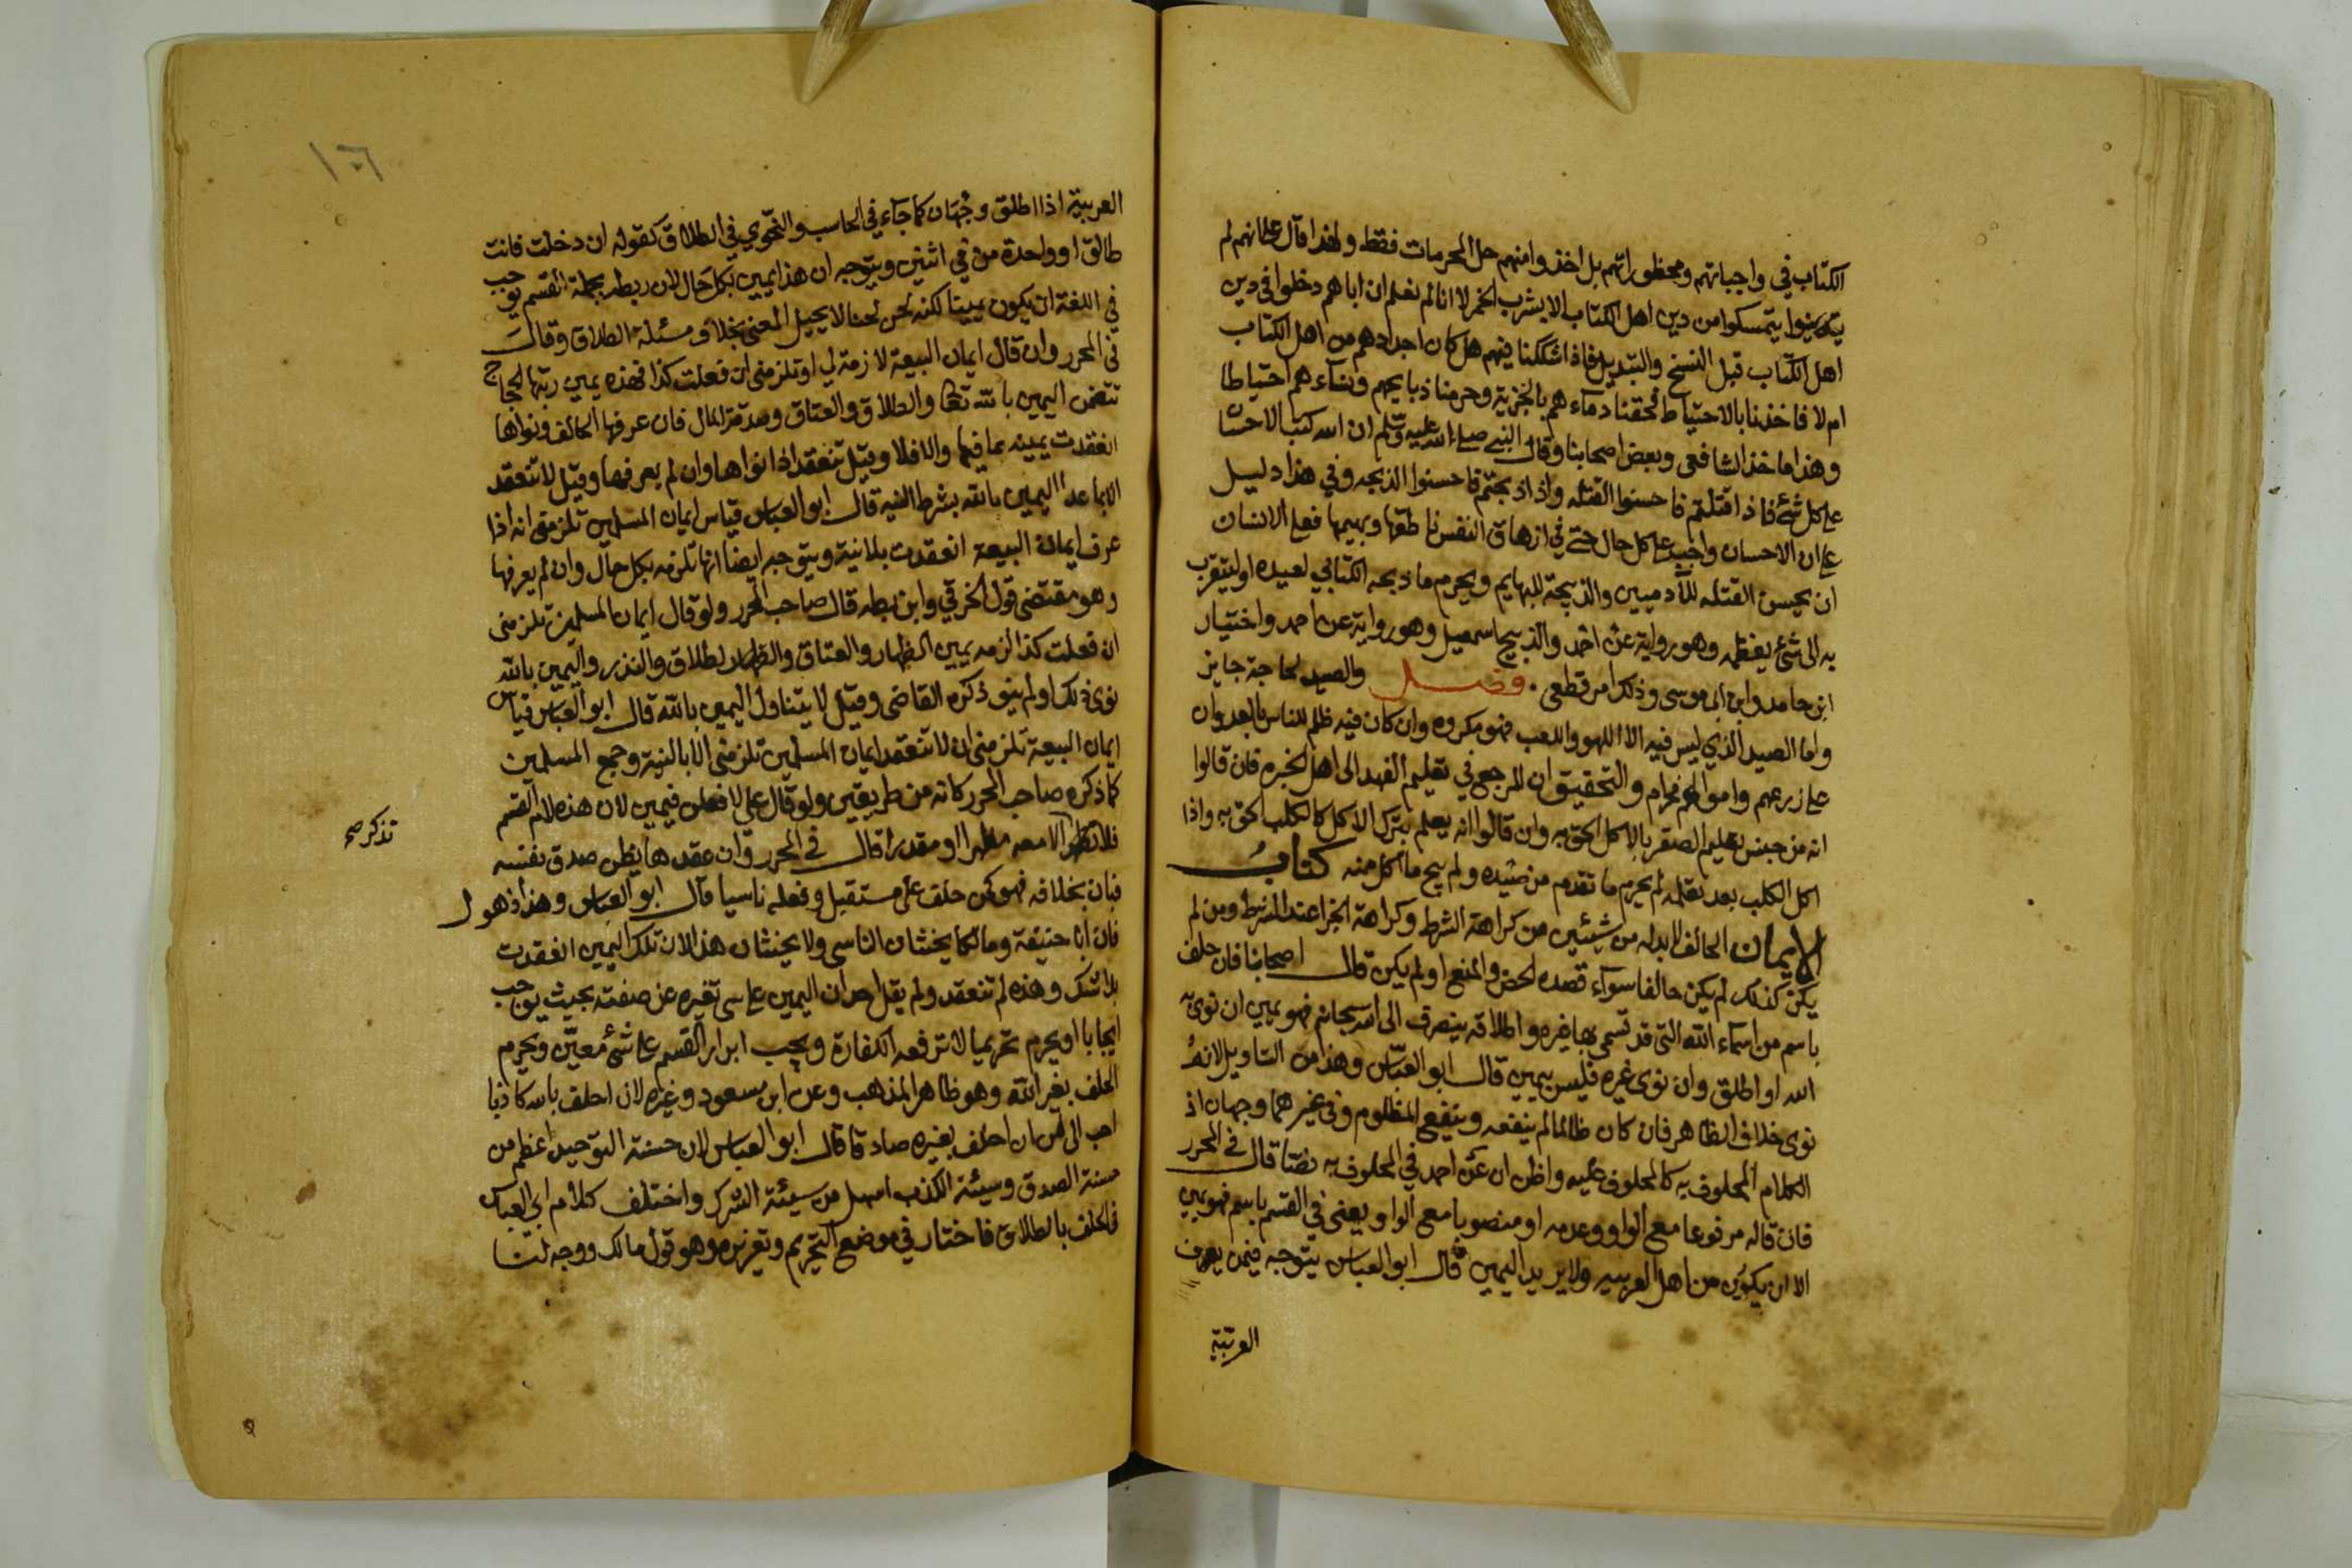 الكتاب في واجباتهم ومحظوراتهم بل اخذوا منهم حل المحرمات فقط ولهذا قال علي انهم لم
يتمسكوا من دين اهل الكتاب الا بشرب الخمر لا انا لم نعلم ان اباهم دخلوا في دين
اهل الكتاب قبل النسخ والتبديل فاذا شككنا فيهم هل كان اجدادهم من اهل الكتاب
ام لا فاخذنا بالاحتياط فحقنا دماءهم بالجزية وحرمنا ذبايحهم ونساءهم احتياطا
وهذا ماخذ الشافعي وبعض اصحابنا وقال النبي صلى الله عليه وسلم ان الله كتب الاحسان
على كل شئ فاذا قتلتم فاحسنوا القتله واذا ذبحتم فاحسنوا الذبحه وفي هذا دليل
على ان الاحسان واجب على كل حال حتى في ازهاق النفس ناطقها وبهيمها فعلى الانسان
ان يحسن القتله للآدميين والذبيحة للبهايم ويحرم ما ذبحه الكتابي لعيده او ليتقرب
به الى شئ يعظمه وهو رواية عن احمد والذبيح اسمعيل وهو رواية عن احمد واختيار
ابن حامد وابن ابي موسى وذلك امر قطعي . فصل والصيد لحاجة جايز
واما الصيد الذي ليس فيه الا اللهو واللعب فهو مكروه وان كان فيه ظلم للناس بالعدوان
على زرعهم واموالهم فحرام والتحقيق ان المرجع في تعليم الفهد الى اهل الخبره فان قالوا
انه من جنس تعليم الصقر بالاكل الحق به وان قالوا انه يعلم بترك الاكل كالكلب الحق به واذا
اكل الكلب بعد تعلمه لم يحرم ما تقدم من صيده ولم يبح ما اكل منه كتاب
الايمان الحالف لا بد له من شيئين من كراهة الشرط وكراهة الجزا عند الشرط ومن لم
يكن كذلك لم يكن حالفا سواء قصده الحض والمنع او لم يكن قال اصحابنا فان حلف
باسم من اسماء الله التي قد تسمى بها غيره واطلاقه ينصرف الى الله سبحانه فهو يمين ان نوى به
الله او اطلق وان نوى غيره فليس بيمين قال ابو العباس وهذا من التاويل لانه
نوى خلاف الظاهر فان كان ظالما لم ينفعه وينفع المظلوم وفي غيرهما وجهان اذ
الكلام المحلوف به كالمحلوف عليه واظن ان عن احمد في المحلوف به نصا قال في المحرر
فان قاله مرفوعا مع الواو وعدمه او منصوبا مع الواو ويعني في القسم باسم فهو يمين
الا ان يكون من اهل العربيه ولا يريد اليمين قال ابو العباس يتوجه فيمن يعرف
العربية
١٠٦
العربية اذا اطلق وجهان كما جاء في الحاسب والنحوي في الطلاق كقوله ان دخلت فانت
طالق او واحدة من في اثنين ويتوجه ان هذا يمين بكل حال لان ربطه بجملة القسم يوجب
في اللغة ان يكون يمينا لكنه لحن لحنا لا يحيل المعنى بخلاف مسئلة الطلاق وقال
في المحرر وان قال ايمان البيعة لازمة لي او تلزمني ان فعلت كذا فهذه يمين رتبها الحجاج
تتضمن اليمين بالله تعالى والطلاق والعتاق وصدقة المال فان عرفها الحالف ونواها
انعقدت يمينه بما فيها والا فلا وقيل تنعقد اذا نواها وان لم يعرفها وقيل لا تنعقد
الا بما عدا اليمين بالله بشرط النيه قال ابو العباس قياس ايمان المسلمين تلزمني انه اذا
عرف ايمان البيعة انعقدت بلا نية ويتوجه ايضا انها تلزمه بكل حال وان لم يعرفها
وهو مقتضى قول الخرقي وابن بطه قال صاحب المحرر ولو قال ايمان المسلمين تلزمني
ان فعلت كذا لزمه يمين الظهار والعتاق والطلاق والنذر واليمين بالله
نوى ذلك او لم ينو ذكره القاضي وقيل لا يتناول اليمين بالله قال ابو العباس قياس
ايمان البيعة تلزمني ان لا تنعقد ايمان المسلمين تلزمني الا بالنية وجمع المسلمين
كما ذكره صاحب المحرر كانه من طريقين ولو قال علي لافعلن فيمين لان هذه لام القسم
فلا تذكر الا معه مظهرا او مقدرا قال في المحرر وان عقدها يظن صدق نفسه
تذكر صح
فبان بخلافه فهو كمن حلف على مستقبل وفعله ناسيا قال ابو العباس وهذا ذهول
فان ابا حنيفة ومالكا يحنثان الناسي ولا يحنثان هذا لان تلك اليمين انعقدت
بلا شك وهذه لم تنعقد ولم يقل احد ان اليمين على شئ تغيره عن صفته بحيث يوجب
ايجابا او يحرم تحريما لا ترفعه الكفارة ويجب ابرار القسم على شئ معين ويحرم
الحلف بغير الله وهو ظاهر المذهب وعن ابن مسعود وغيره لان احلف بالله كاذبا
احب الي من ان احلف بغيره صادقا قال ابو العباس لان حسنة التوحيد اعظم من
حسنة الصدق وسيئة الكذب اسهل من سيئة الشرك واختلف كلام ابي العباس
في الحلف بالطلاق فاختار في موضع التحريم وتعزيره وهو قول مالك ووجه لنا